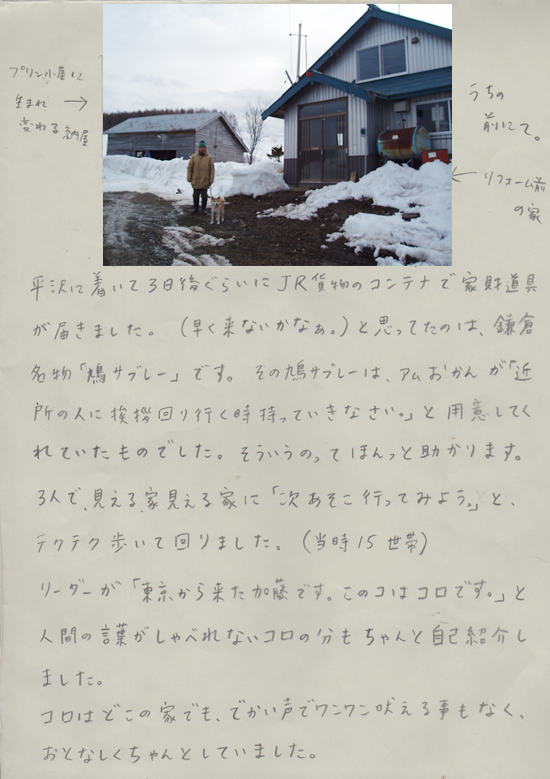 プリン小屋に
生まれ →
変わる納屋
うちの
前にて。
← リフォーム前
の家
平沢に着いて3日後ぐらいにJR貨物のコンテナで家財道具
が届きました。(早く来ないかなぁ。)と思ってたのは、鎌倉
名物「鳩サブレー」です。その鳩サブレーは、アムおかんが「近
所の人に挨拶回り行く時持っていきなさい。」と用意してく
れていたものでした。そういうのってほんっと助かります。
3人で、見える家見える家に「次あそこ行ってみよう。」と、
テクテク歩いて回りました。(当時15世帯)
リーダーが「東京から来た加藤です。このコはコロです。」と
人間の言葉がしゃべれないコロの分もちゃんと自己紹介し
ました。
コロはどこの家でも、でかい声でワンワン吠える事もなく、
おとなしくちゃんとしていました。